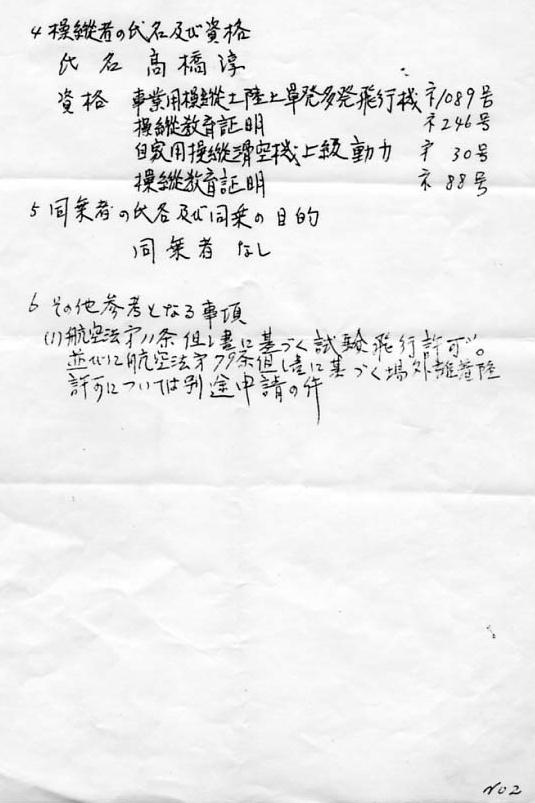 4 操縦者の氏名及び資格
氏名 高橋淳
資格 事業用操縦士陸上単発多発飛行機 才1089号
操縦教育証明 才246号
自家用操縦滑空機上級動力 才30号
操縦教育証明 才88号
5 同乗者の氏名及び同乗の目的
同乗者 なし
6 その他参考となる事項
(1)航空法才11条但し書に基づく試験飛行許可。
並びに航空法才79条但し書に基づく場外離着陸
許可については別途申請の件
No 2